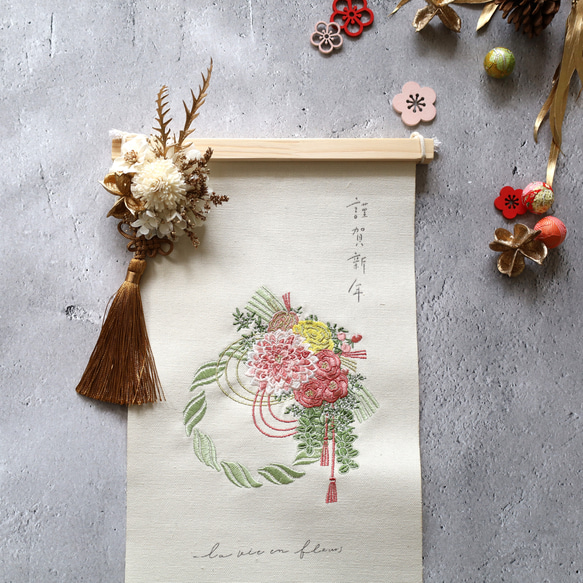 謹賀新年
la vie en fleurs